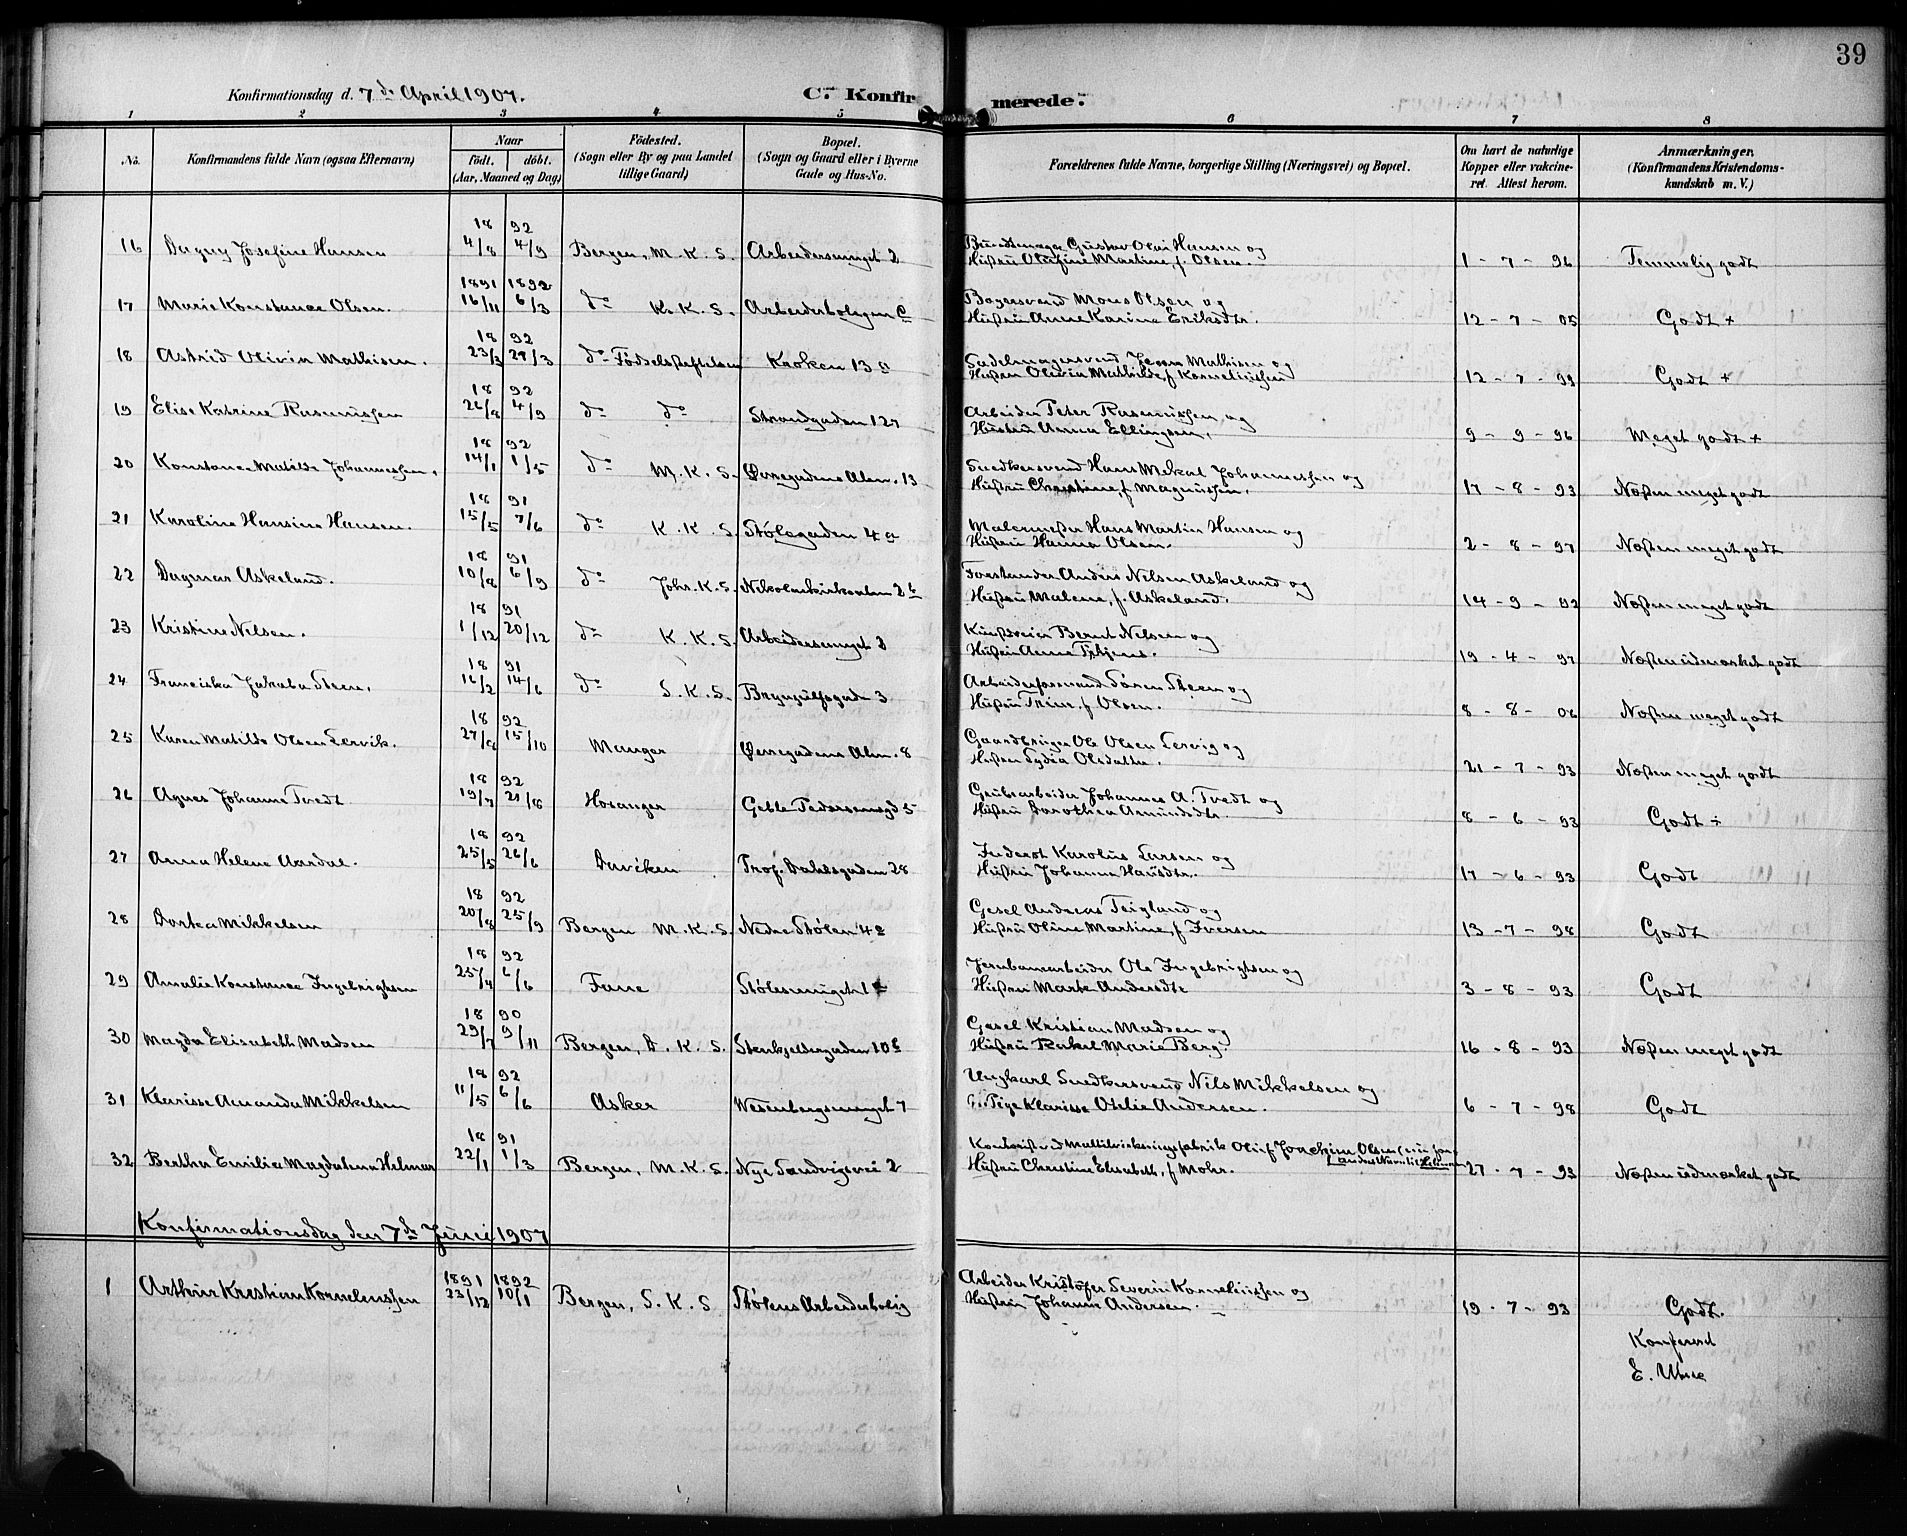 39
Konfirmationsdag d. 7de April 1907.
C. Konfirmerede.
1 2 3 4 5 6 7 8
No. Konfirmandens fulde Navn (ogsaa Efternavn) Naar født. døbt. (Aar, Maaned og Dag) Fødested. (Sogn eller By og paa Landet tillige Gaard) Bopæl. (Sogn og Gaard eller i Byerne Gade og Hus-No. Forældrenes fulde Navne, borgerlige Stilling (Næringsvei) og Bopæl. Om havt de naturlige Kopper eller vakcineret. Attest herom. Anmærkninger, (Konfirmandens Kristendomskundskab m. V.)
16 Dagny Josefine Hansen 18 92 4/8 4/9 Bergen, M. K. S. Arbeidersmuget 2 Gustav Olai Hansen og Hustru Olufine Martine, f. Olsen. 1 - 7 - 96 Temmelig godt
17 Marie Konstance Olsen. 1891 1892 16/11 6/3 do K. K. S. Arbeiderboligen C Bagersvend Mons Olsen og Hustru Anne Karine Eriksdtr. 12 - 7 - 05 Godt +
18 Astrid Olivia Mathisen. 18 92 23/3 28/3 do Fødselsstiftelsen Kroken 13 a Sadelmagersvend Mathisen og Hustru Olivia Mathilde f Korneliussen 12 - 7 - 99 Godt +
19 Elise Katrine Rasmussen 18 92 26/8 4/9 do do Strandgaden 127 Arbeider Peter Rasmussen og Hustru Anna Ellingsen. 9 - 9 - 96 Meget godt +
20 Konstance Matilde Johannessen. 18 92 14/1 1/5 do M. K. S. Øvregadens Alm. 13 Snedkersvend Hans Mekal Johannessen og Hustru Christine, f. Magnussen. 17 - 8 - 93 Næsten meget godt
21 Karoline Hansine Hansen. 18 91 15/5 7/6 do K. K. S. Stølegaden 4 a Malermester Hans Martin Hansen og Hustru Hanna Olsen. 2 - 8 - 97 Næsten meget godt
22 Dagmar Askeland. 18 91 10/8 6/9 do Johs. K. S. Nikolaikirkealm 2 b Forstander Anders Nelsen Askeland og Hustru Malene, f. Askeland. 14 - 9 - 92 Næsten meget godt
23 Kristine Nelsen. 18 91 1/12 20/12 do K. K. S. Arbeidersmuget 2 Bernt Nelsen og Hustru Anne 19 - 4 - 97 Næsten udmærket godt
24 Franciska Jakoba Steen. 18 91 16/2 14/6 do S. K. S. Brynjulfsgade 3 Arbeiderformand Sören Steen og Hustru Trine, f Olsen. 8 - 8 - 06 Næsten meget godt
25 Karen Matilde Olsen Lervik. 18 92 27/8 15/10 Manger Øvregadens Alm. 8 Gaardbruger Ole Olsen Lervig og Hustru Sydia Olsdatter. 21 - 7 - 93 Næsten meget godt
26 Agnes Johanne Tvedt 18 92 19/7 21/8 Hosanger Geble Pedersensgd 5 Grubearbeider Johannes A. Tvedt og Hustru Dorothea Amundsdtr. 8 - 6 - 93 Godt ÷
27 Anna Helene Aardal. 18 92 25/5 26/6 Daviken Prof. Dahlsgaden 28 Inderst Karolus Larsen og Hustru Johanne Hansdtr. 17 - 6 - 93 Godt
28 Dortea Mikkelsen 18 92 20/8 25/9 Bergen M. K. S. Nedre Stølen 4 a Gesel Andreas Teigland og Hustru Oline Martine, f Iversen 13 - 7 - 98 Godt
29 Amalie Konstance Ingebrigtsen 18 92 25/4 6/6 Fane Stølesmuget 1 Jernbanearbeider Ole Ingebrigtsen og Hustru Marte Andersdtr 3 - 8 - 93 Godt
30 Magda Elisabeth Madsen 18 90 29/7 9/11 Bergen, D. K. S. Stenkjeldergaden 10 b Gesel Kristian Madsen og Hustru Rakel Marie Berg. 16 - 8 - 93 Næsten meget godt
31 Klarisse Amanda Mikkelsen 18 92 11/5 6/6 Asker Wesenbergsmuget 7 Ungkarl Snedkersvend Nils Mikkelsen og Pige Klarisse Otelie Andersen. 6 - 7 - 98 Godt
32 Berther Emilie Magdalene Helmar 18 91 22/1 1/3 Bergen, M. K. S. Nye Sandvigsvei 2 Oluf Joachim Olsen Hustru Christine Elisabeth, f Mohr. 27 - 7 - 93 Næsten udmærket godt
Konfirmationsdag den 7de Juni 1907
1 Arthur Kristian Kornelinssen 1891 1892 23/12 10/1 Bergen, S. K. S Stølens Arbeiderbolig Arbeider Kristofer Severin Korneliussen og Hustru Johanne Andersen. 19 - 7 - 93 Godt.
Konfereret
E.